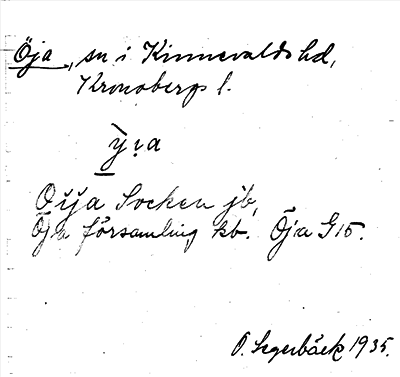 Öja, sn i Kinnevalds hd,
Kronobergs l.
Öija Socken jb,
Öja församling kb. Öja G 15.
O. Segerbäck 1935.